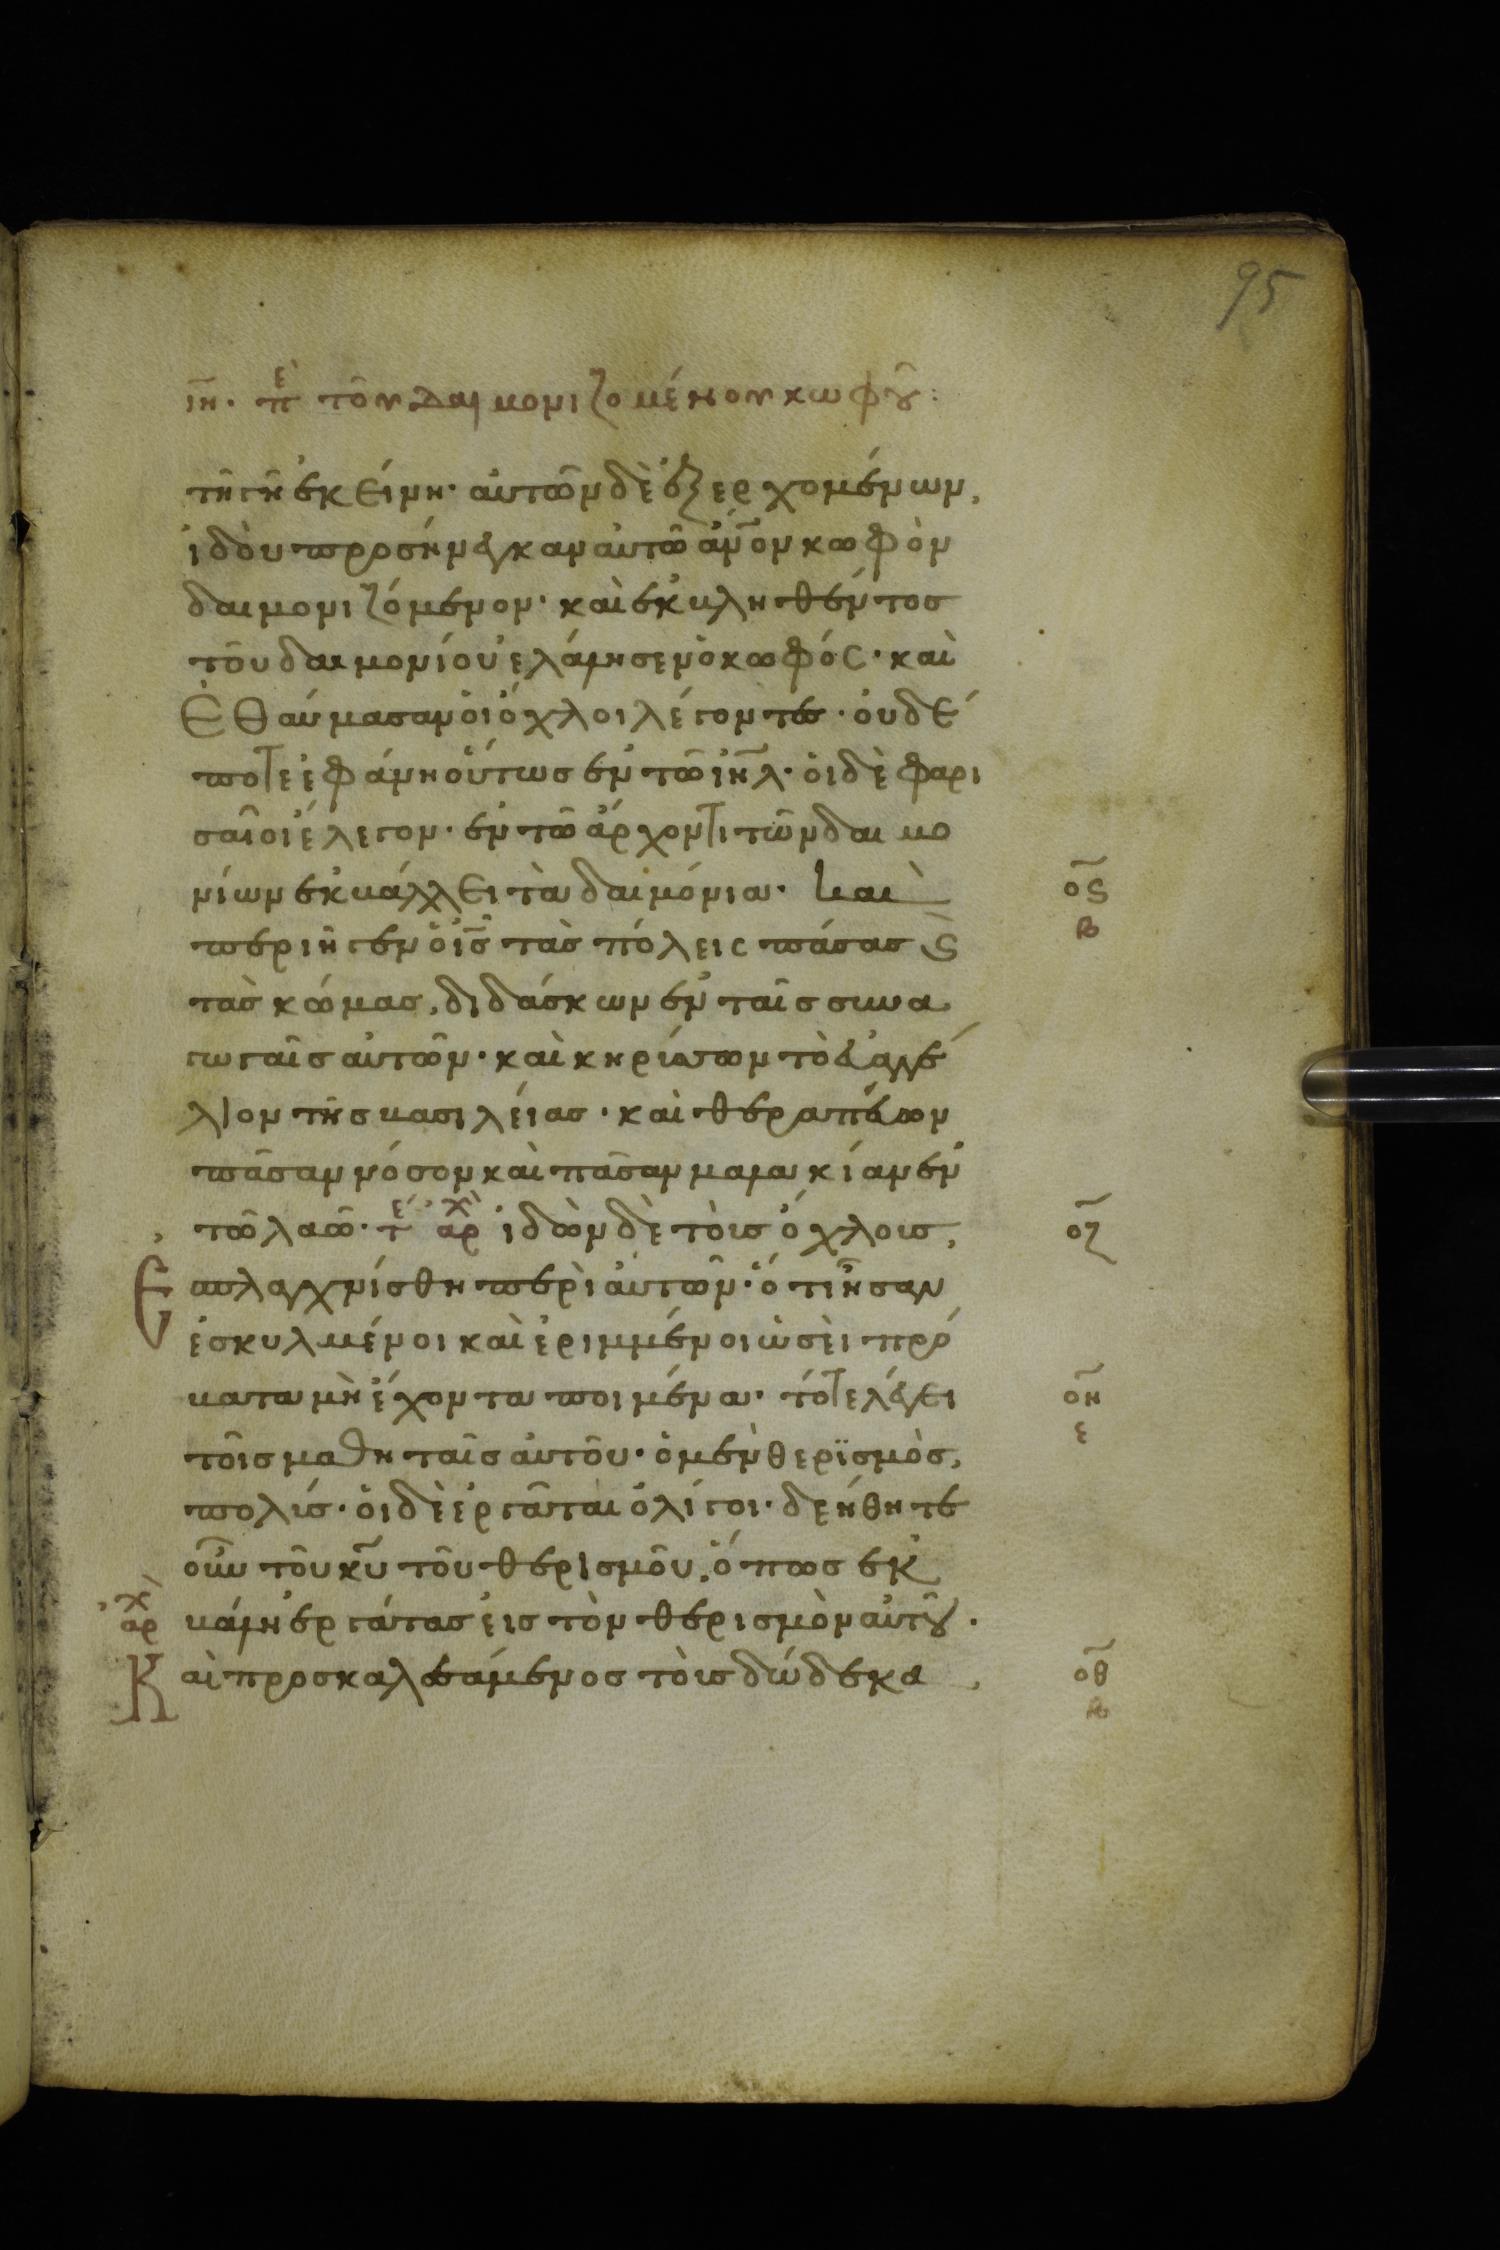 95
ιη̄. πὲ τοῦ δαιμονιζομένου κωφοῦ:
τῆ γῆ ἐκείνη· αὐτῶν δὲ ἐξερχομένων,
ἰδοὺ προσήνεγκαν αὐτῶ ἄν̄ον κωφὸν
δαιμονιζόμενον· καὶ ἐκβληθέντος
τοῦ δαιμονίου ἐλάλησεν ὁ κωφός· καὶ
ἐθαύμασαν οἱ ὄχλοι λέγοντες· οὐδέ
ποτε ἐφάνη οὕτως ἐν τῶ ιη̄λ· οἱ δὲ φαρι
σαῖοι ἔλεγον· ἐν τῶ ἄρχοντι τῶν δαιμο
νίων ἐκβάλλει τὰ δαιμόνια· καὶ
ος̄
β
περιῆγεν ὁ ις̄ τὰς πόλεις πάσας ϗ
τὰς κώμας, διδάσκων ἐν ταῖς συνα
γωγαῖς αὐτῶν· καὶ κηρύσσων τὸ εὐαγγέ
λιον τῆς βασιλείας· καὶ θεραπεύων
πᾶσαν νόσον καὶ πᾶσαν μαλακίαν ἐν
τῶ λαῶ· τέ ἀρχ̀ ἰδὼν δὲ τοὺς ὄχλους,
οζ̄
Ἐσπλαγχνίσθη περὶ αὐτῶν· ὅτι ἦσαν
ἐσκυλμένοι καὶ ἐριμμένοι ὡσεὶ πρό
βατα μὴ ἔχοντα ποιμένα· τότε λέγει
οη̄
ε
τοῖς μαθηταῖς αὐτοῦ· ὁ μὲν θερϊσμὸς,
πολύς· οἱ δὲ ἐργάται ὀλίγοι· δεήθητε
οὖν τοῦ κ̄υ τοῦ θερισμοῦ, ὅπως ἐκ
βάλη ἐργάτας εἰς τὸν θερισμὸν αὐτοῦ.
ἀρχ̀
Καὶ προσκαλεσάμενος τοὺς δώδεκα,
οθ̄
β